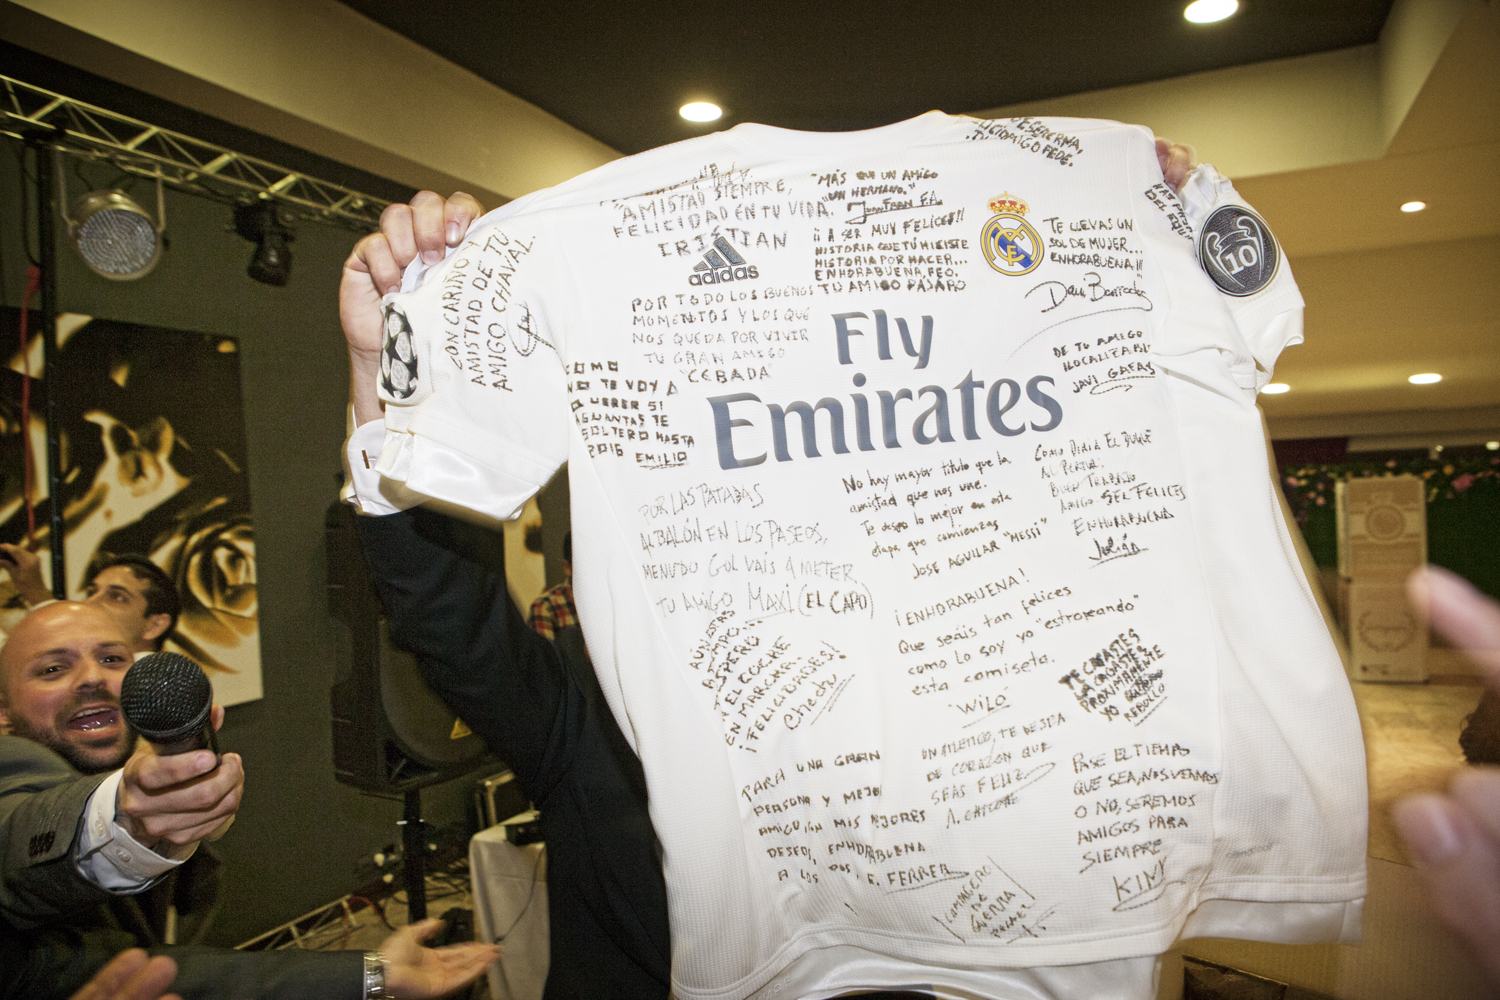 CON CARIÑO Y
AMISTAD DE TU
AMIGO CHAVAL.
AMISTAD SIEMPRE,
FELICIDAD EN TU VIDA.
CRISTIAN
adidas
"MÁS QUE UN AMIGO
UN HERMANO."
JUANFRAN F.A.
¡¡A SER MUY FELICES!!
HISTORIA QUE TÚ HICISTE
HISTORIA POR HACER...
ENHORABUENA, FEO.
TU AMIGO PÁJARO
TU AMIGO FEDE.
TE LLEVAS UN
SOL DE MUJER...
ENHORABUENA!!
10
POR TODO LOS BUENOS
MOMENTOS Y LOS QUE
NOS QUEDA POR VIVIR
TU GRAN AMIGO
"CEBADA"
Fly
Emirates
DE TU AMIGO
JAVI GAFAS
COMO
NO TE VOY A
QUERER SI
AGUANTAS TE
SOLTERO HASTA
2016 EMILIO
POR LAS PATADAS
AL BALÓN EN LOS PASEOS,
MENUDO GOL VAIS A METER
TU AMIGO MAXI (EL CAPO)
No hay mayor título que la
amistad que nos une.
Te deseo lo mejor en esta
etapa que comienzas
JOSE AGUILAR "MESSI"
COMO DIRIA EL DUQUE
AL PERLA:
BUEN TRABAJO
AMIGO SED FELICES
ENHORABUENA
Julián
EN EL COCHE
EN MARCHA.
¡FELICIDADES!
Chechu
¡ENHORABUENA!
Que seáis tan felices
como lo soy yo "estropeando"
esta camiseta.
"WILO"
TE CASASTE
LA CAGASTE
PROXIMAMENTE
YO
REBOLLO
PARA UNA GRAN
PERSONA Y MEJOR
AMIGO CON MIS MEJORES
DESEOS, ENHORABUENA
A LOS DOS. F. FERRER
UN ATLETICO, TE DESEA
DE CORAZÓN QUE
SEAS FELIZ
PASE EL TIEMPO
QUE SEA, NOS VEAMOS
O NO, SEREMOS
AMIGOS PARA
SIEMPRE
KIMY
COMPAÑERO
DE
GUERRA
RAFAEL